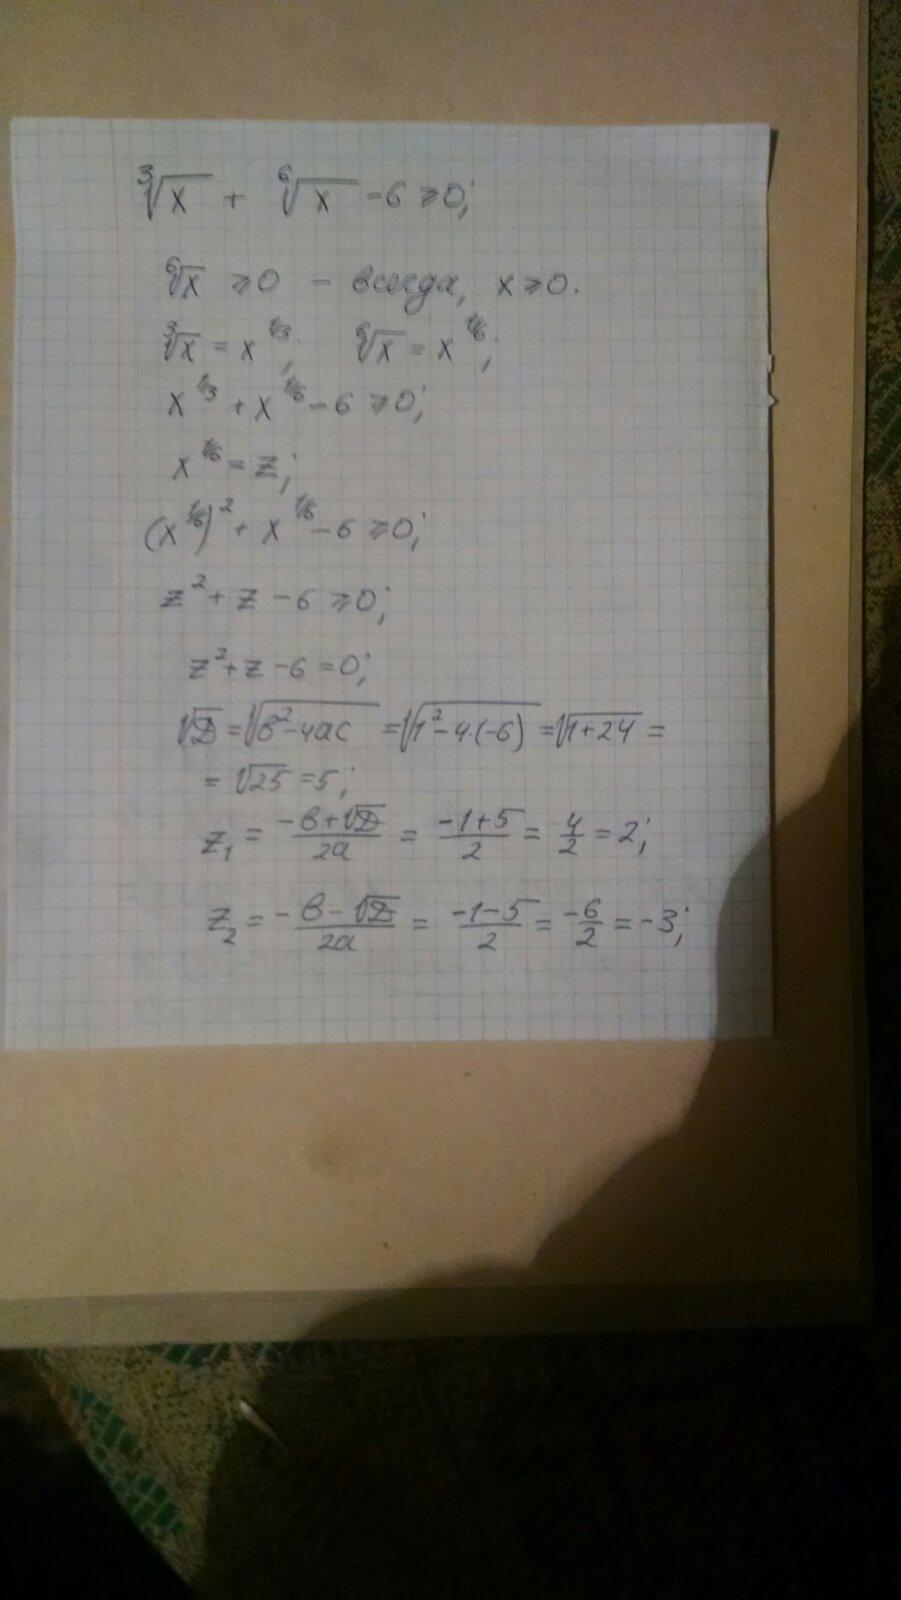 ∛x + ⁶√x - 6 ≥ 0;
⁶√x ≥ 0 - всегда, x ≥ 0.
∛x = x^1/3; ⁶√x = x^1/6;
x^1/3 + x^1/6 - 6 ≥ 0;
x^1/6 = z;
(x^1/6)² + x^1/6 - 6 ≥ 0;
z² + z - 6 ≥ 0;
z² + z - 6 = 0;
√D = √(b² - 4ac) = √(1² - 4·(-6)) = √(1+24) =
= √25 = 5;
z₁ = (-b+√D)/2a = (-1+5)/2 = 4/2 = 2;
z₂ = (-b-√D)/2a = (-1-5)/2 = -6/2 = -3;